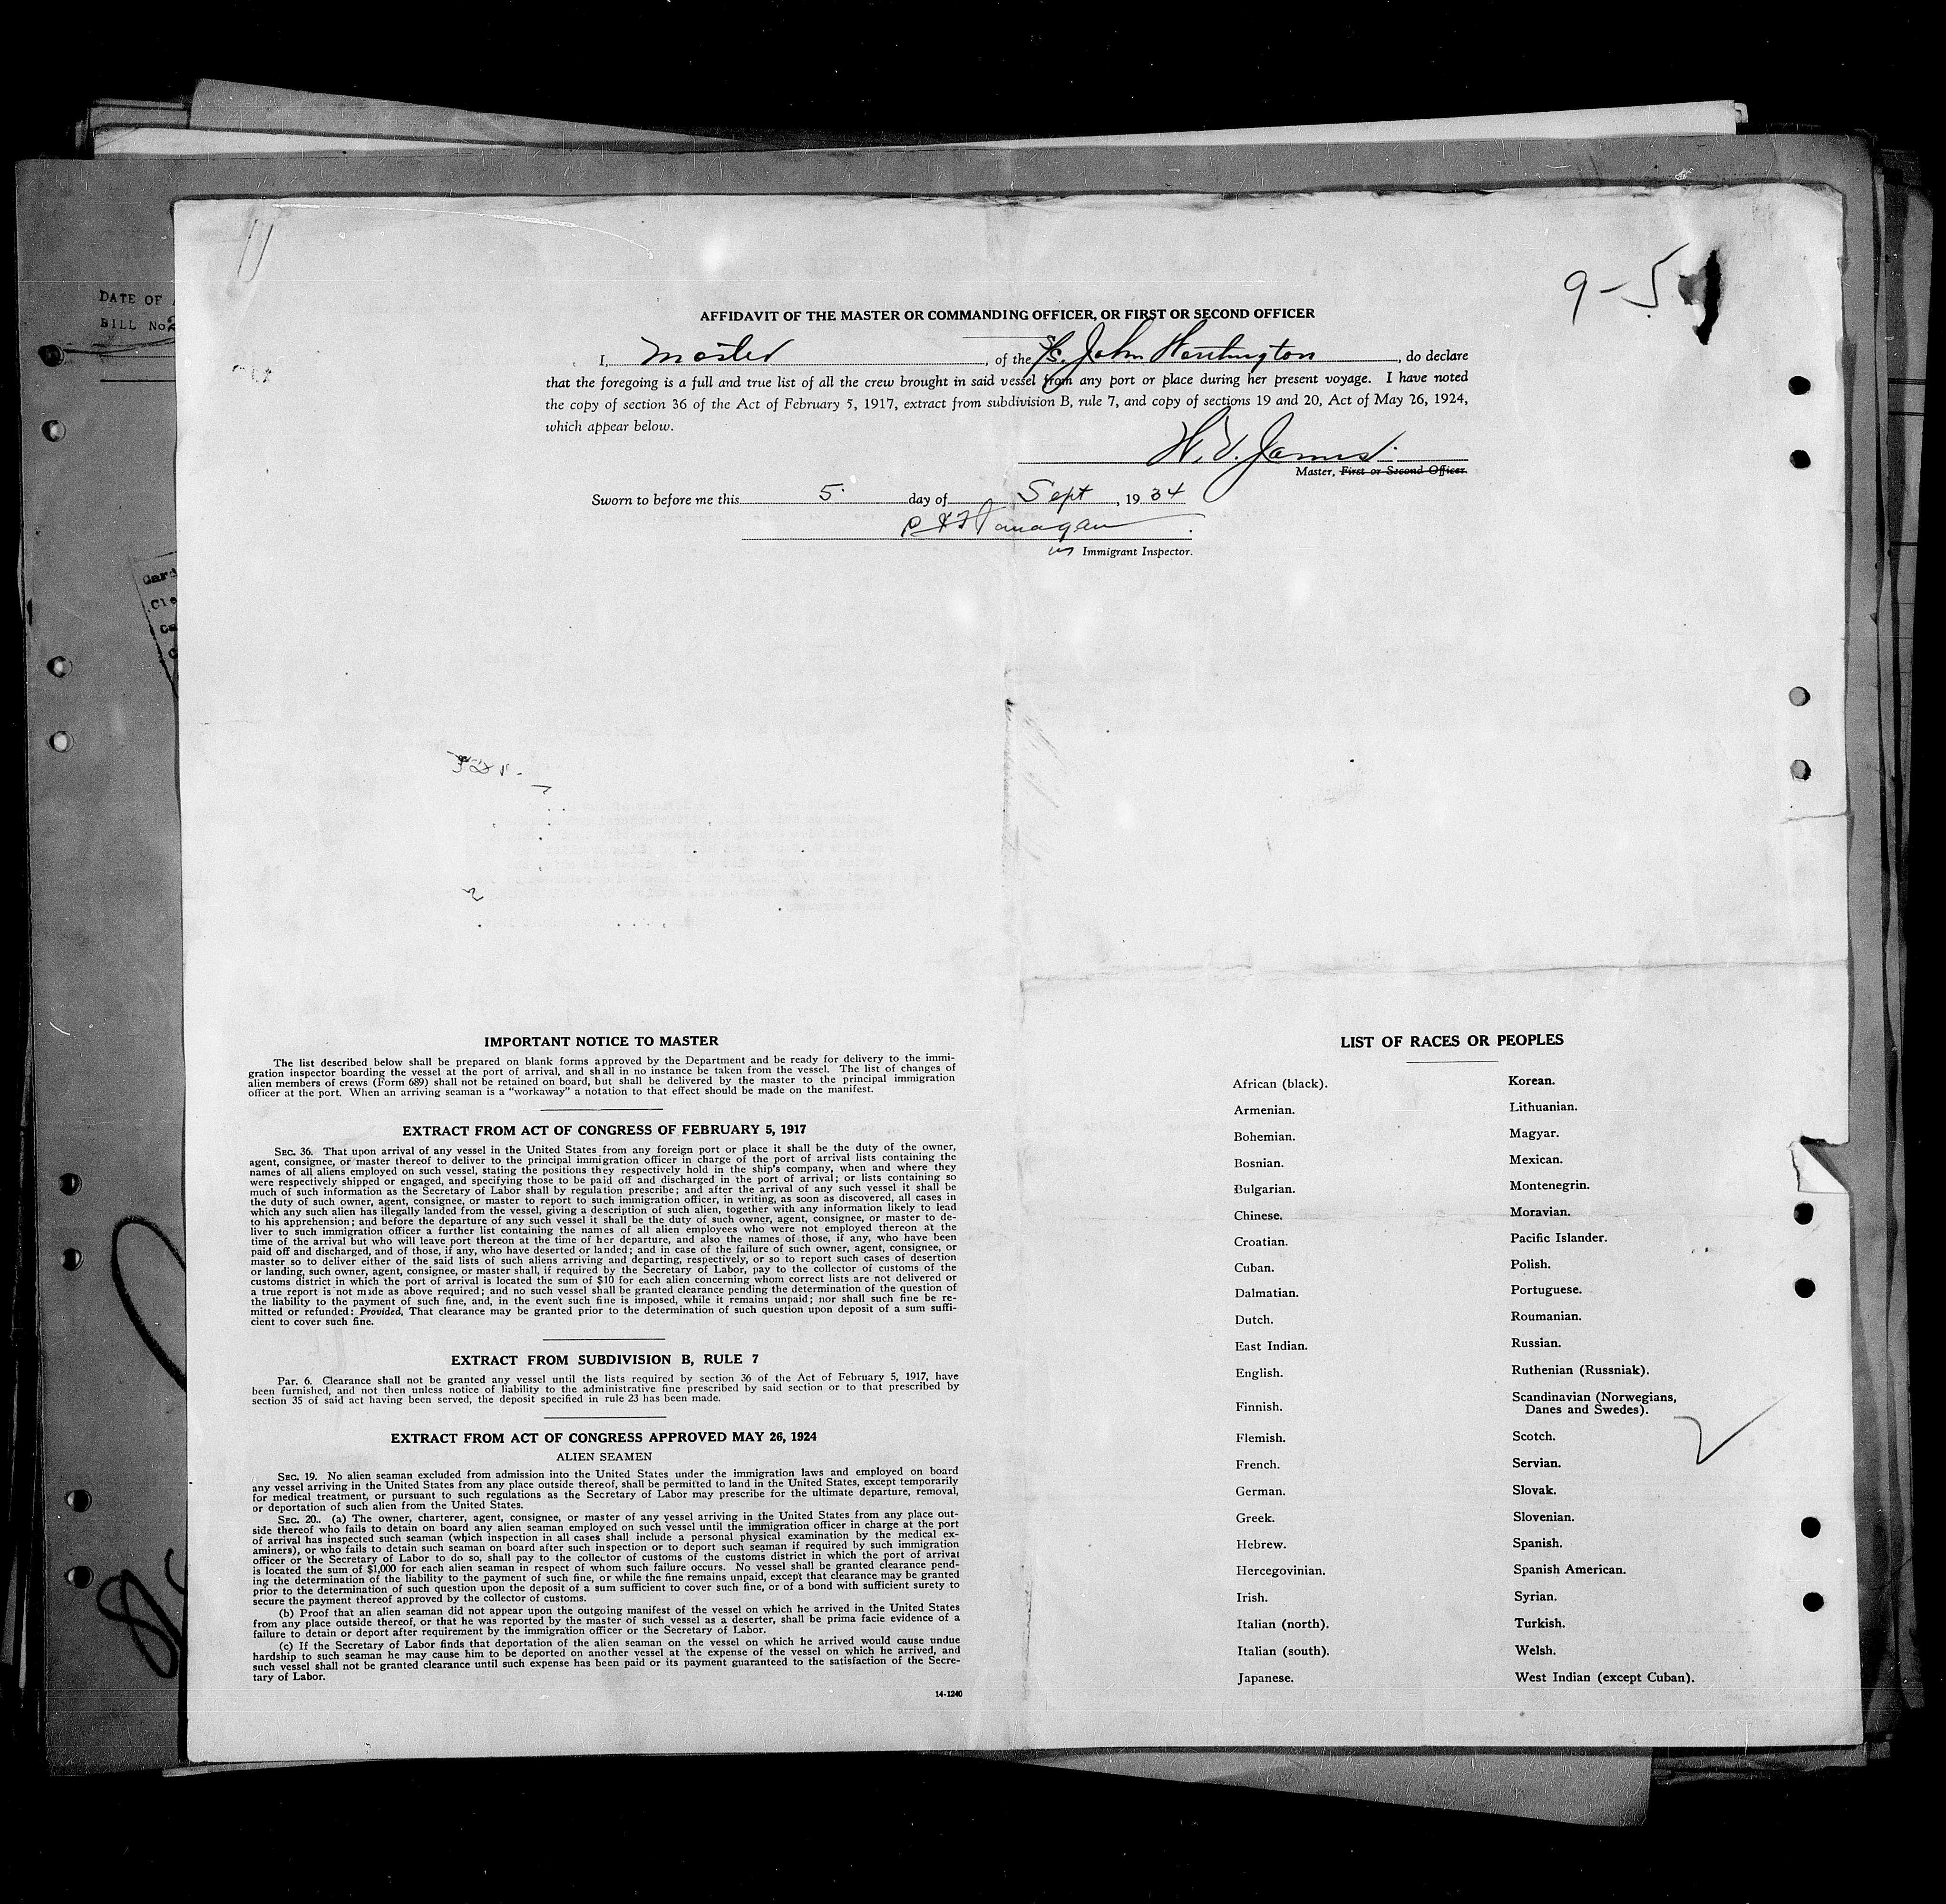 9-5
DATE OF
BILL No 2
AFFIDAVIT OF THE MASTER OR COMMANDING OFFICER, OR FIRST OR SECOND OFFICER
I, Master, of the SS. John Worthington, do declare
that the foregoing is a full and true list of all the crew brought in said vessel from any port or place during her present voyage. I have noted
the copy of section 36 of the Act of February 5, 1917, extract from subdivision B, rule 7, and copy of sections 19 and 20, Act of May 26, 1924,
which appear below.
H. V. James
Master, First or Second Officer.
Sworn to before me this 5 day of Sept, 1934
Flanagan
Immigrant Inspector.
IMPORTANT NOTICE TO MASTER
The list described below shall be prepared on blank forms approved by the Department and be ready for delivery to the immi-
gration inspector boarding the vessel at the port of arrival, and shall in no instance be taken from the vessel. The list of changes of
alien members of crews (Form 689) shall not be retained on board, but shall be delivered by the master to the principal immigration
officer at the port. When an arriving seaman is a "workaway" a notation to that effect should be made on the manifest.
EXTRACT FROM ACT OF CONGRESS OF FEBRUARY 5, 1917
SEC. 36. That upon arrival of any vessel in the United States from any foreign port or place it shall be the duty of the owner,
agent, consignee, or master thereof to deliver to the principal immigration officer in charge of the port of arrival lists containing the
names of all aliens employed on such vessel, stating the positions they respectively hold in the ship's company, when and where they
were respectively shipped or engaged, and specifying those to be paid off and discharged in the port of arrival; or lists containing so
much of such information as the Secretary of Labor shall by regulation prescribe; and after the arrival of any such vessel it shall be
the duty of such owner, agent, consignee, or master to report to such immigration officer, in writing, as soon as discovered, all cases in
which any such alien has illegally landed from the vessel, giving a description of such alien, together with any information likely to lead
to his apprehension; and before the departure of any such vessel it shall be the duty of such owner, agent, consignee, or master to de-
liver to such immigration officer a further list containing the names of all alien employees who were not employed thereon at the
time of the arrival but who will leave port thereon at the time of her departure, and also the names of those, if any, who have been
paid off and discharged, and of those, if any, who have deserted or landed; and in case of the failure of such owner, agent, consignee, or
master so to deliver either of the said lists of such aliens arriving and departing, respectively, or so to report such cases of desertion
or landing, such owner, agent, consignee, or master shall, if required by the Secretary of Labor, pay to the collector of customs of the
customs district in which the port of arrival is located the sum of $10 for each alien concerning whom correct lists are not delivered or
a true report is not made as above required; and no such vessel shall be granted clearance pending the determination of the question of
the liability to the payment of such fine, and, in the event such fine is imposed, while it remains unpaid; nor shall such fine be re-
mitted or refunded: Provided, That clearance may be granted prior to the determination of such question upon deposit of a sum suffi-
cient to cover such fine.
EXTRACT FROM SUBDIVISION B, RULE 7
Par. 6. Clearance shall not be granted any vessel until the lists required by section 36 of the Act of February 5, 1917, have
been furnished, and not then unless notice of liability to the administrative fine prescribed by said section or to that prescribed by
section 35 of said act having been served, the deposit specified in rule 23 has been made.
EXTRACT FROM ACT OF CONGRESS APPROVED MAY 26, 1924
ALIEN SEAMEN
SEC. 19. No alien seaman excluded from admission into the United States under the immigration laws and employed on board
any vessel arriving in the United States from any place outside thereof, shall be permitted to land in the United States, except temporarily
for medical treatment, or pursuant to such regulations as the Secretary of Labor may prescribe for the ultimate departure, removal,
or deportation of such alien from the United States.
SEC. 20.. (a) The owner, charterer, agent, consignee, or master of any vessel arriving in the United States from any place out-
side thereof who fails to detain on board any alien seaman employed on such vessel until the immigration officer in charge at the port
of arrival has inspected such seaman (which inspection in all cases shall include a personal physical examination by the medical ex-
aminers), or who fails to detain such seaman on board after such inspection or to deport such seaman if required by such immigration
officer or the Secretary of Labor to do so, shall pay to the collector of customs of the customs district in which the port of arrival
is located the sum of $1,000 for each alien seaman in respect of whom such failure occurs. No vessel shall be granted clearance pend-
ing the determination of the liability to the payment of such fine, or while the fine remains unpaid, except that clearance may be granted
prior to the determination of such question upon the deposit of a sum sufficient to cover such fine, or of a bond with sufficient surety to
secure the payment thereof approved by the collector of customs.
(b) Proof that an alien seaman did not appear upon the outgoing manifest of the vessel on which he arrived in the United States
from any place outside thereof, or that he was reported by the master of such vessel as a deserter, shall be prima facie evidence of a
failure to detain or deport after requirement by the immigration officer or the Secretary of Labor.
(c) If the Secretary of Labor finds that deportation of the alien seaman on the vessel on which he arrived would cause undue
hardship to such seaman he may cause him to be deported on another vessel at the expense of the vessel on which he arrived, and
such vessel shall not be granted clearance until such expense has been paid or its payment guaranteed to the satisfaction of the Secre-
tary of Labor.
14-1240
LIST OF RACES OR PEOPLES
African (black).
Armenian.
Bohemian.
Bosnian.
Bulgarian.
Chinese.
Croatian.
Cuban.
Dalmatian.
Dutch.
East Indian.
English.
Finnish.
Flemish.
French.
German.
Greek.
Hebrew.
Hercegovinian.
Irish.
Italian (north).
Italian (south).
Japanese.
Korean.
Lithuanian.
Magyar.
Mexican.
Montenegrin.
Moravian.
Pacific Islander.
Polish.
Portuguese.
Roumanian.
Russian.
Ruthenian (Russniak).
Scandinavian (Norwegians,
Danes and Swedes).
Scotch.
Servian.
Slovak.
Slovenian.
Spanish.
Spanish American.
Syrian.
Turkish.
Welsh.
West Indian (except Cuban).